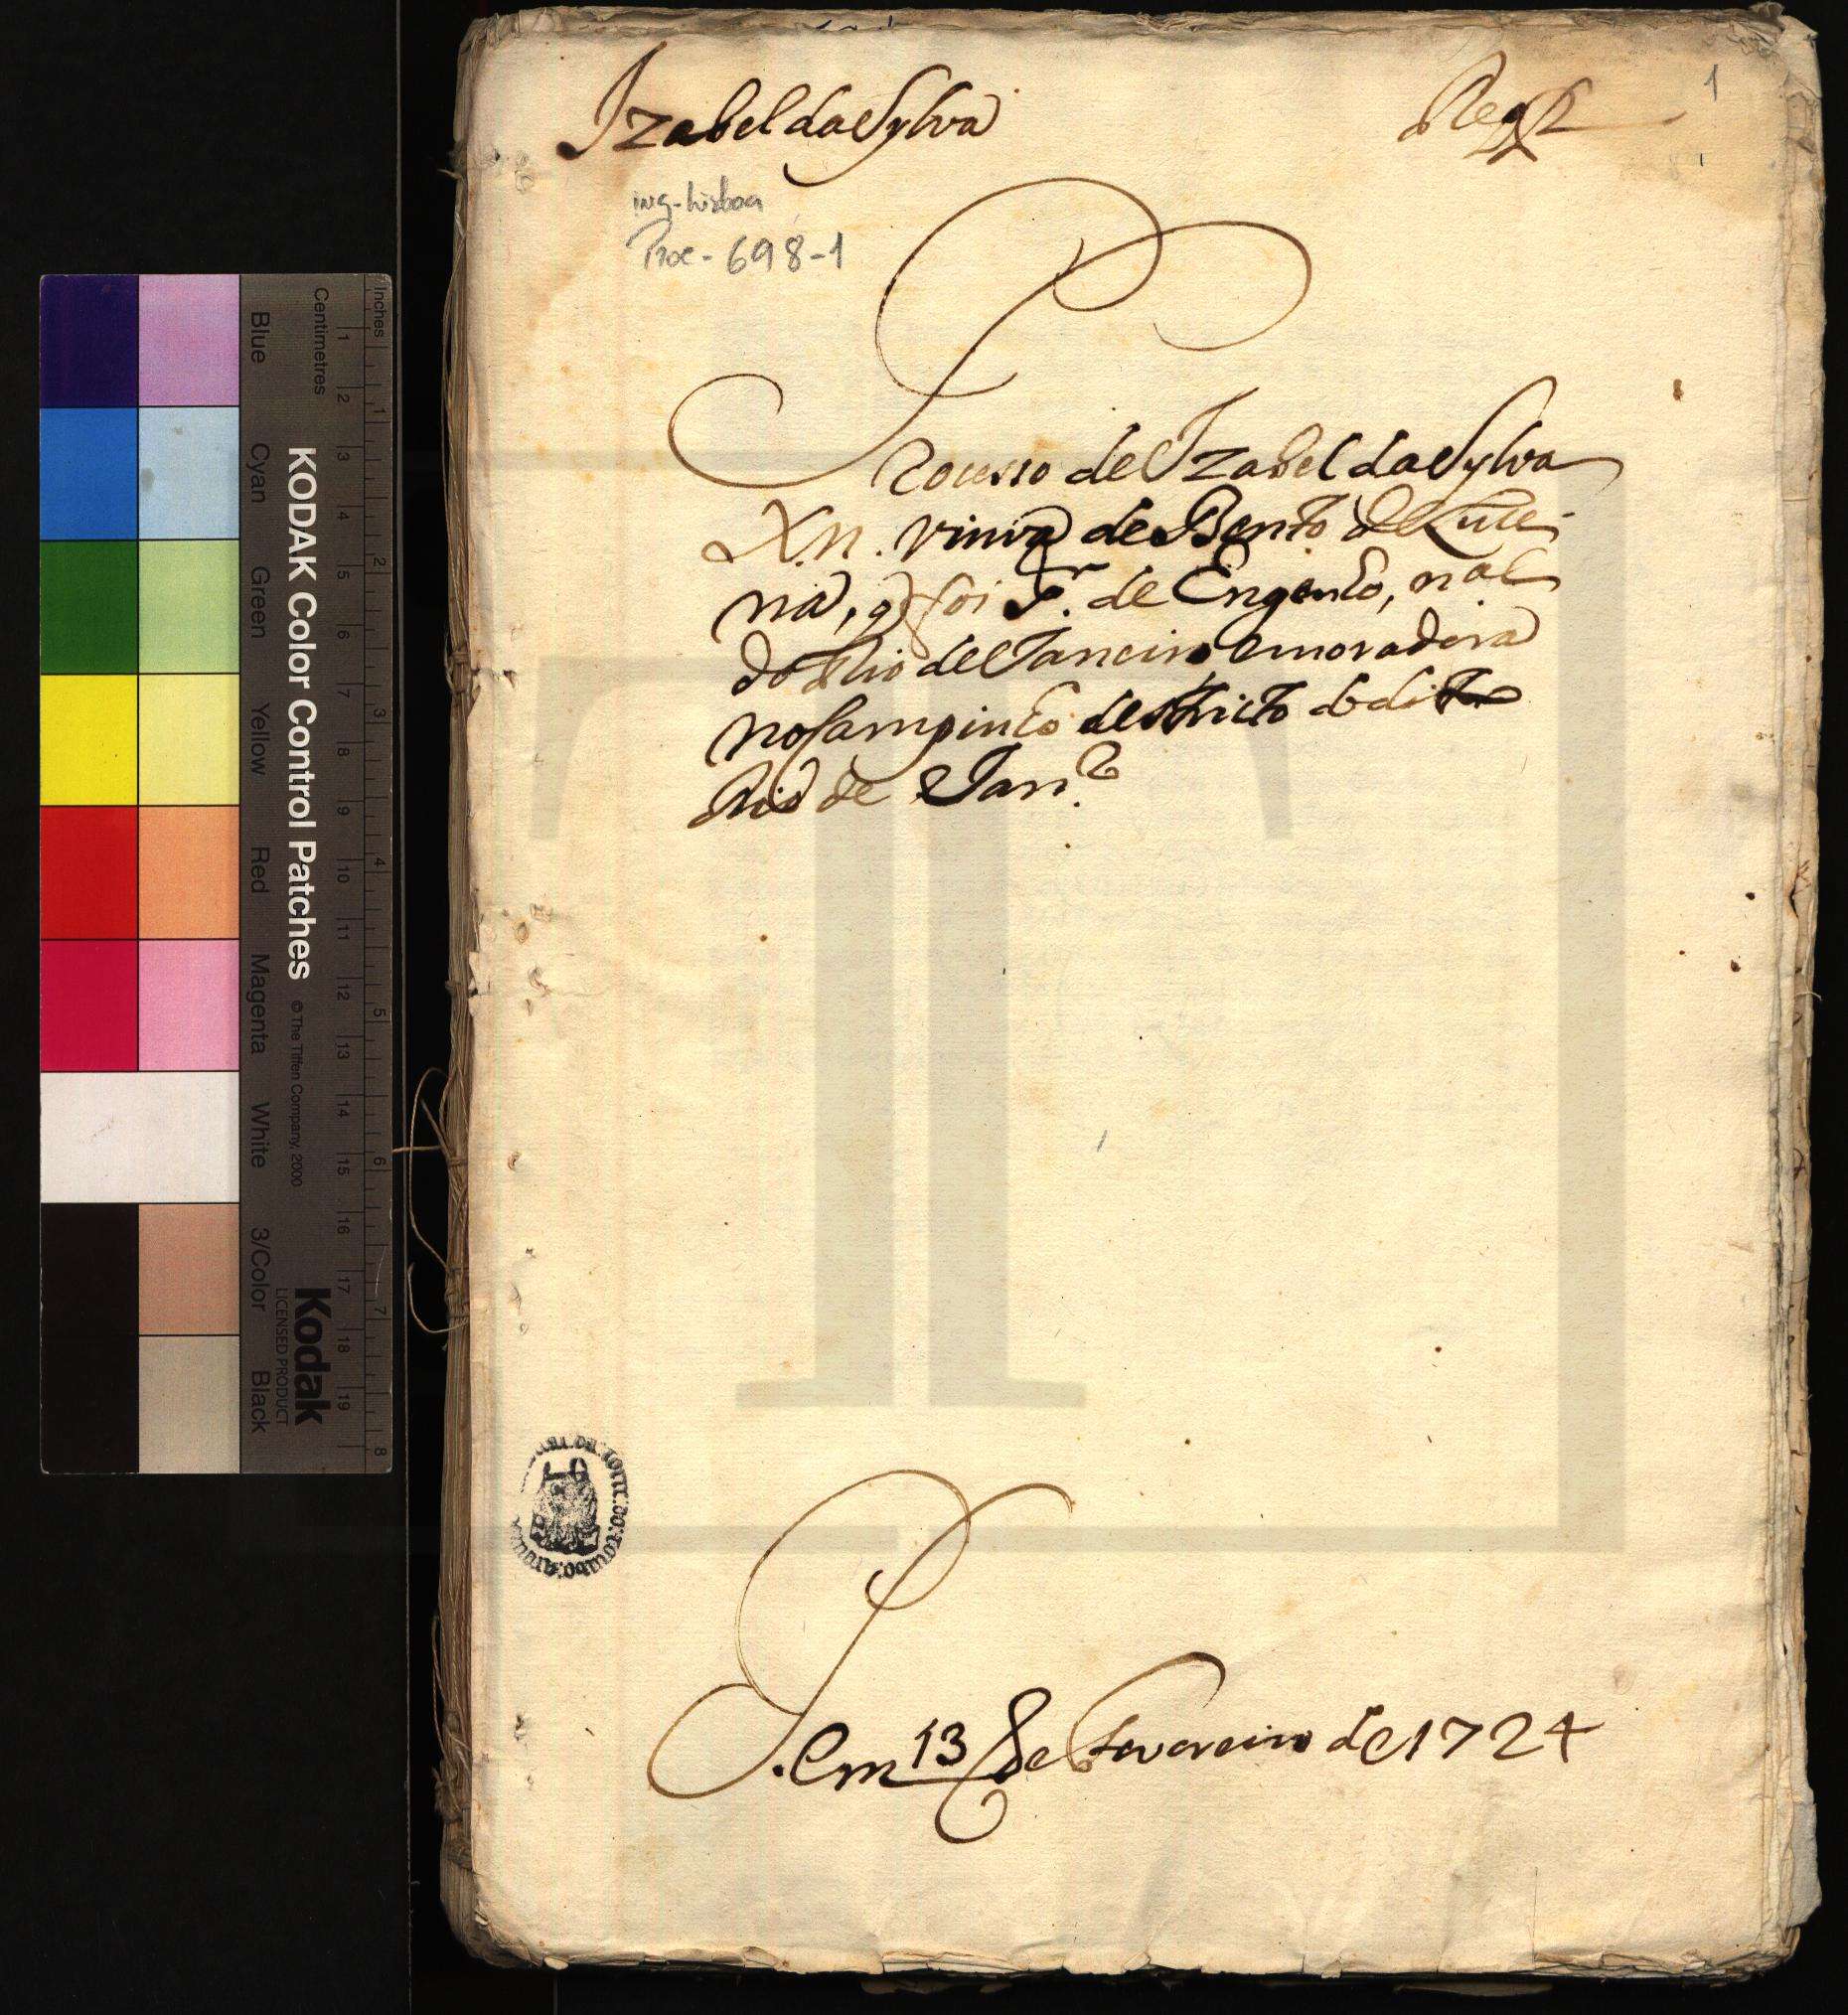 Izabel da Sylva
1
Inq-Lisboa
Proc-698-1
Processo de Izabel da Sylva
X.n. viuva de Bento de Luce-
na, q foi Sr. de Engenho, nal
do Rio de Janeiro e moradora
no Campinho destricto do dito
Rio de Janro
Em 13 de Fevereiro de 1724
KODAK Color Control Patches
© The Tiffen Company, 2000
Kodak
LICENSED PRODUCT
Inches
1 2 3 4 5 6 7 8
Centimetres
1 2 3 4 5 6 7 8 9 10 11 12 13 14 15 16 17 18 19
Blue Cyan Green Yellow Red Magenta White 3/Color Black